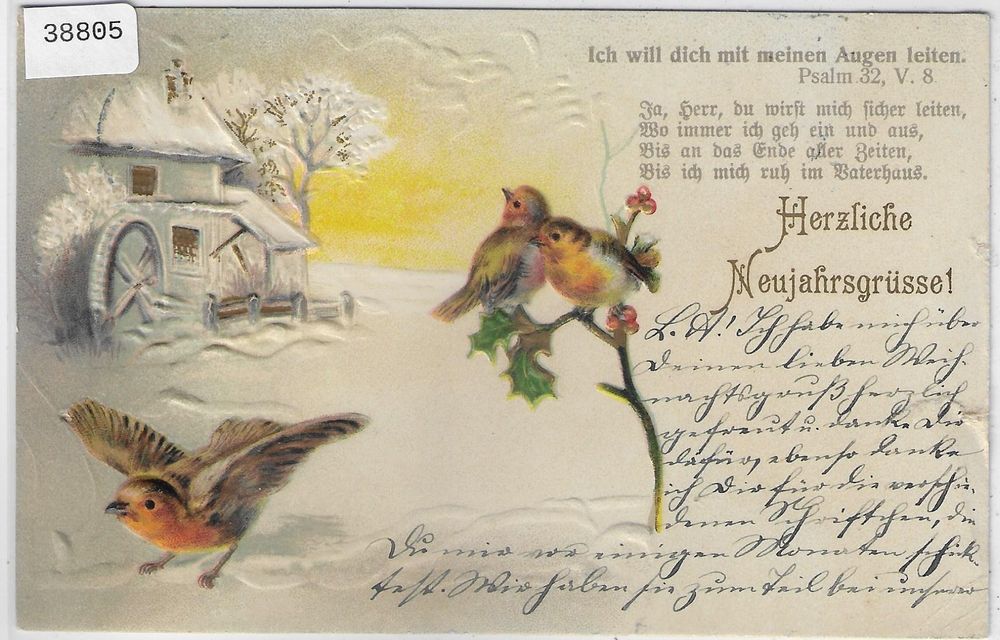 38805
Ich will dich mit meinen Augen leiten.
Psalm 32, V. 8.
Ja, Herr, du wirst mich sicher leiten,
Wo immer ich geh ein und aus,
Bis an das Ende aller Zeiten,
Bis ich mich ruh im Vaterhaus.
Herzliche
Neujahrsgrüsse!
L. A! Ich habe mich über
Deinen lieben Weih-
nachtsgruß herzlich
gefreut u. danke Dir
dafür, ebenso danke
ich Dir für die verschie-
denen Schriftchen, die
Du mir vor einigen Monaten schick-
test. Wir haben sie zum Teil bei unserer